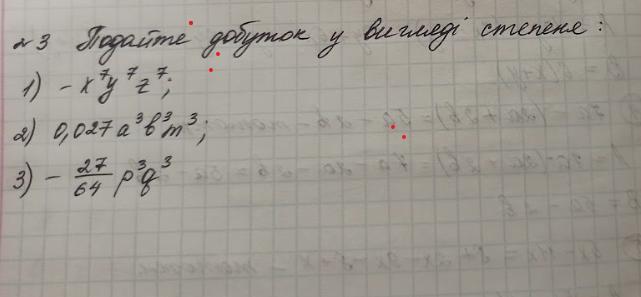 №3 Подайте добуток у вигляді степеня:
1) -x⁷y⁷z⁷;
2) 0,027a³b³m³;
3) -27/64 p³q³